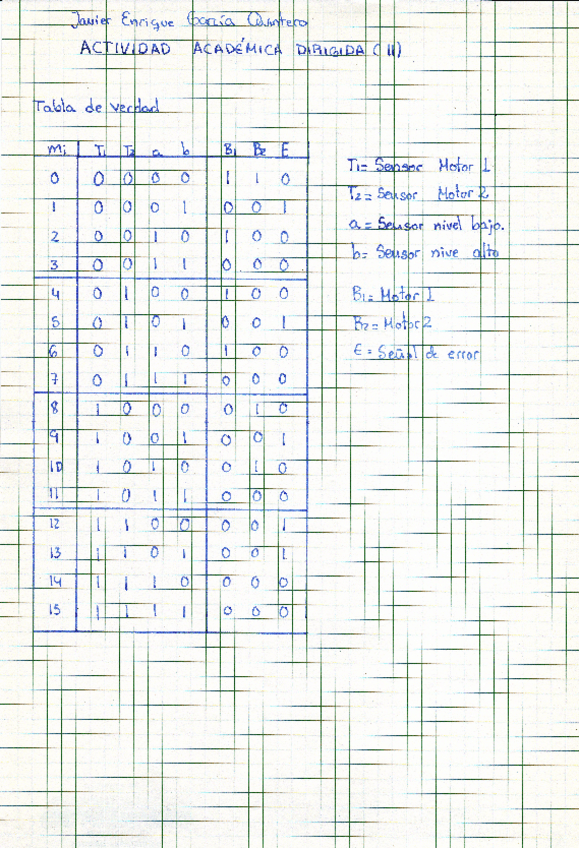 Javier Enrique García Quintero
ACTIVIDAD ACADÉMICA DIRIGIDA (II)
Tabla de verdad
mi T1 T2 a b B1 B2 E
0 0 0 0 0 1 1 0
1 0 0 0 1 0 0 1
2 0 0 1 0 1 0 0
3 0 0 1 1 0 0 0
4 0 1 0 0 1 0 0
5 0 1 0 1 0 0 1
6 0 1 1 0 1 0 0
7 0 1 1 1 0 0 0
8 1 0 0 0 0 1 0
9 1 0 0 1 0 0 1
10 1 0 1 0 0 1 0
11 1 0 1 1 0 0 0
12 1 1 0 0 0 0 1
13 1 1 0 1 0 0 1
14 1 1 1 0 0 0 0
15 1 1 1 1 0 0 0
T1= Sensor Motor 1
T2= Sensor Motor 2
a= Sensor nivel bajo.
b= Sensor nive alto
B1= Motor 1
B2= Motor 2
E= Señal de error